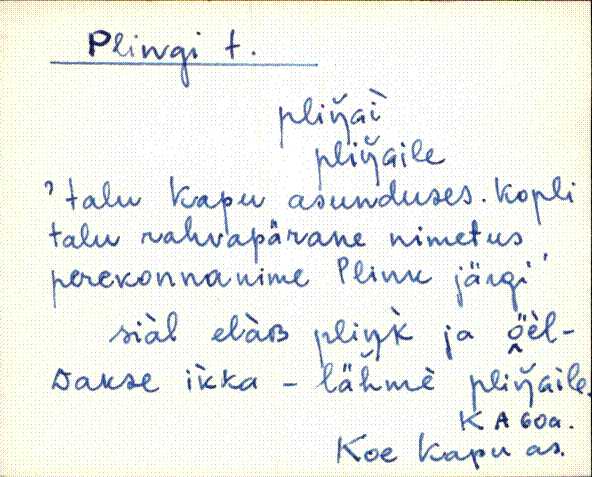 Plingi t.
pliŋ̆ai̇̀
pliŋ̆aile
'talu Kapu asunduses. Kopli
talu rahvapärane nimetus
perekonnanime Plink järgi'
siàl elàʙ pliŋk̀ ja ő̭èl-
Dakse ìkka – lähmè pliŋ̆aile.
K A 60a.
Koe Kapu as.